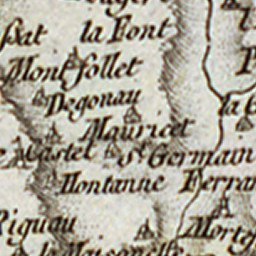 la Font
Mont follet
Degonau
Mauricet
Castel St. Germain
Montanne Ferran
Riquau
la Maisonelle